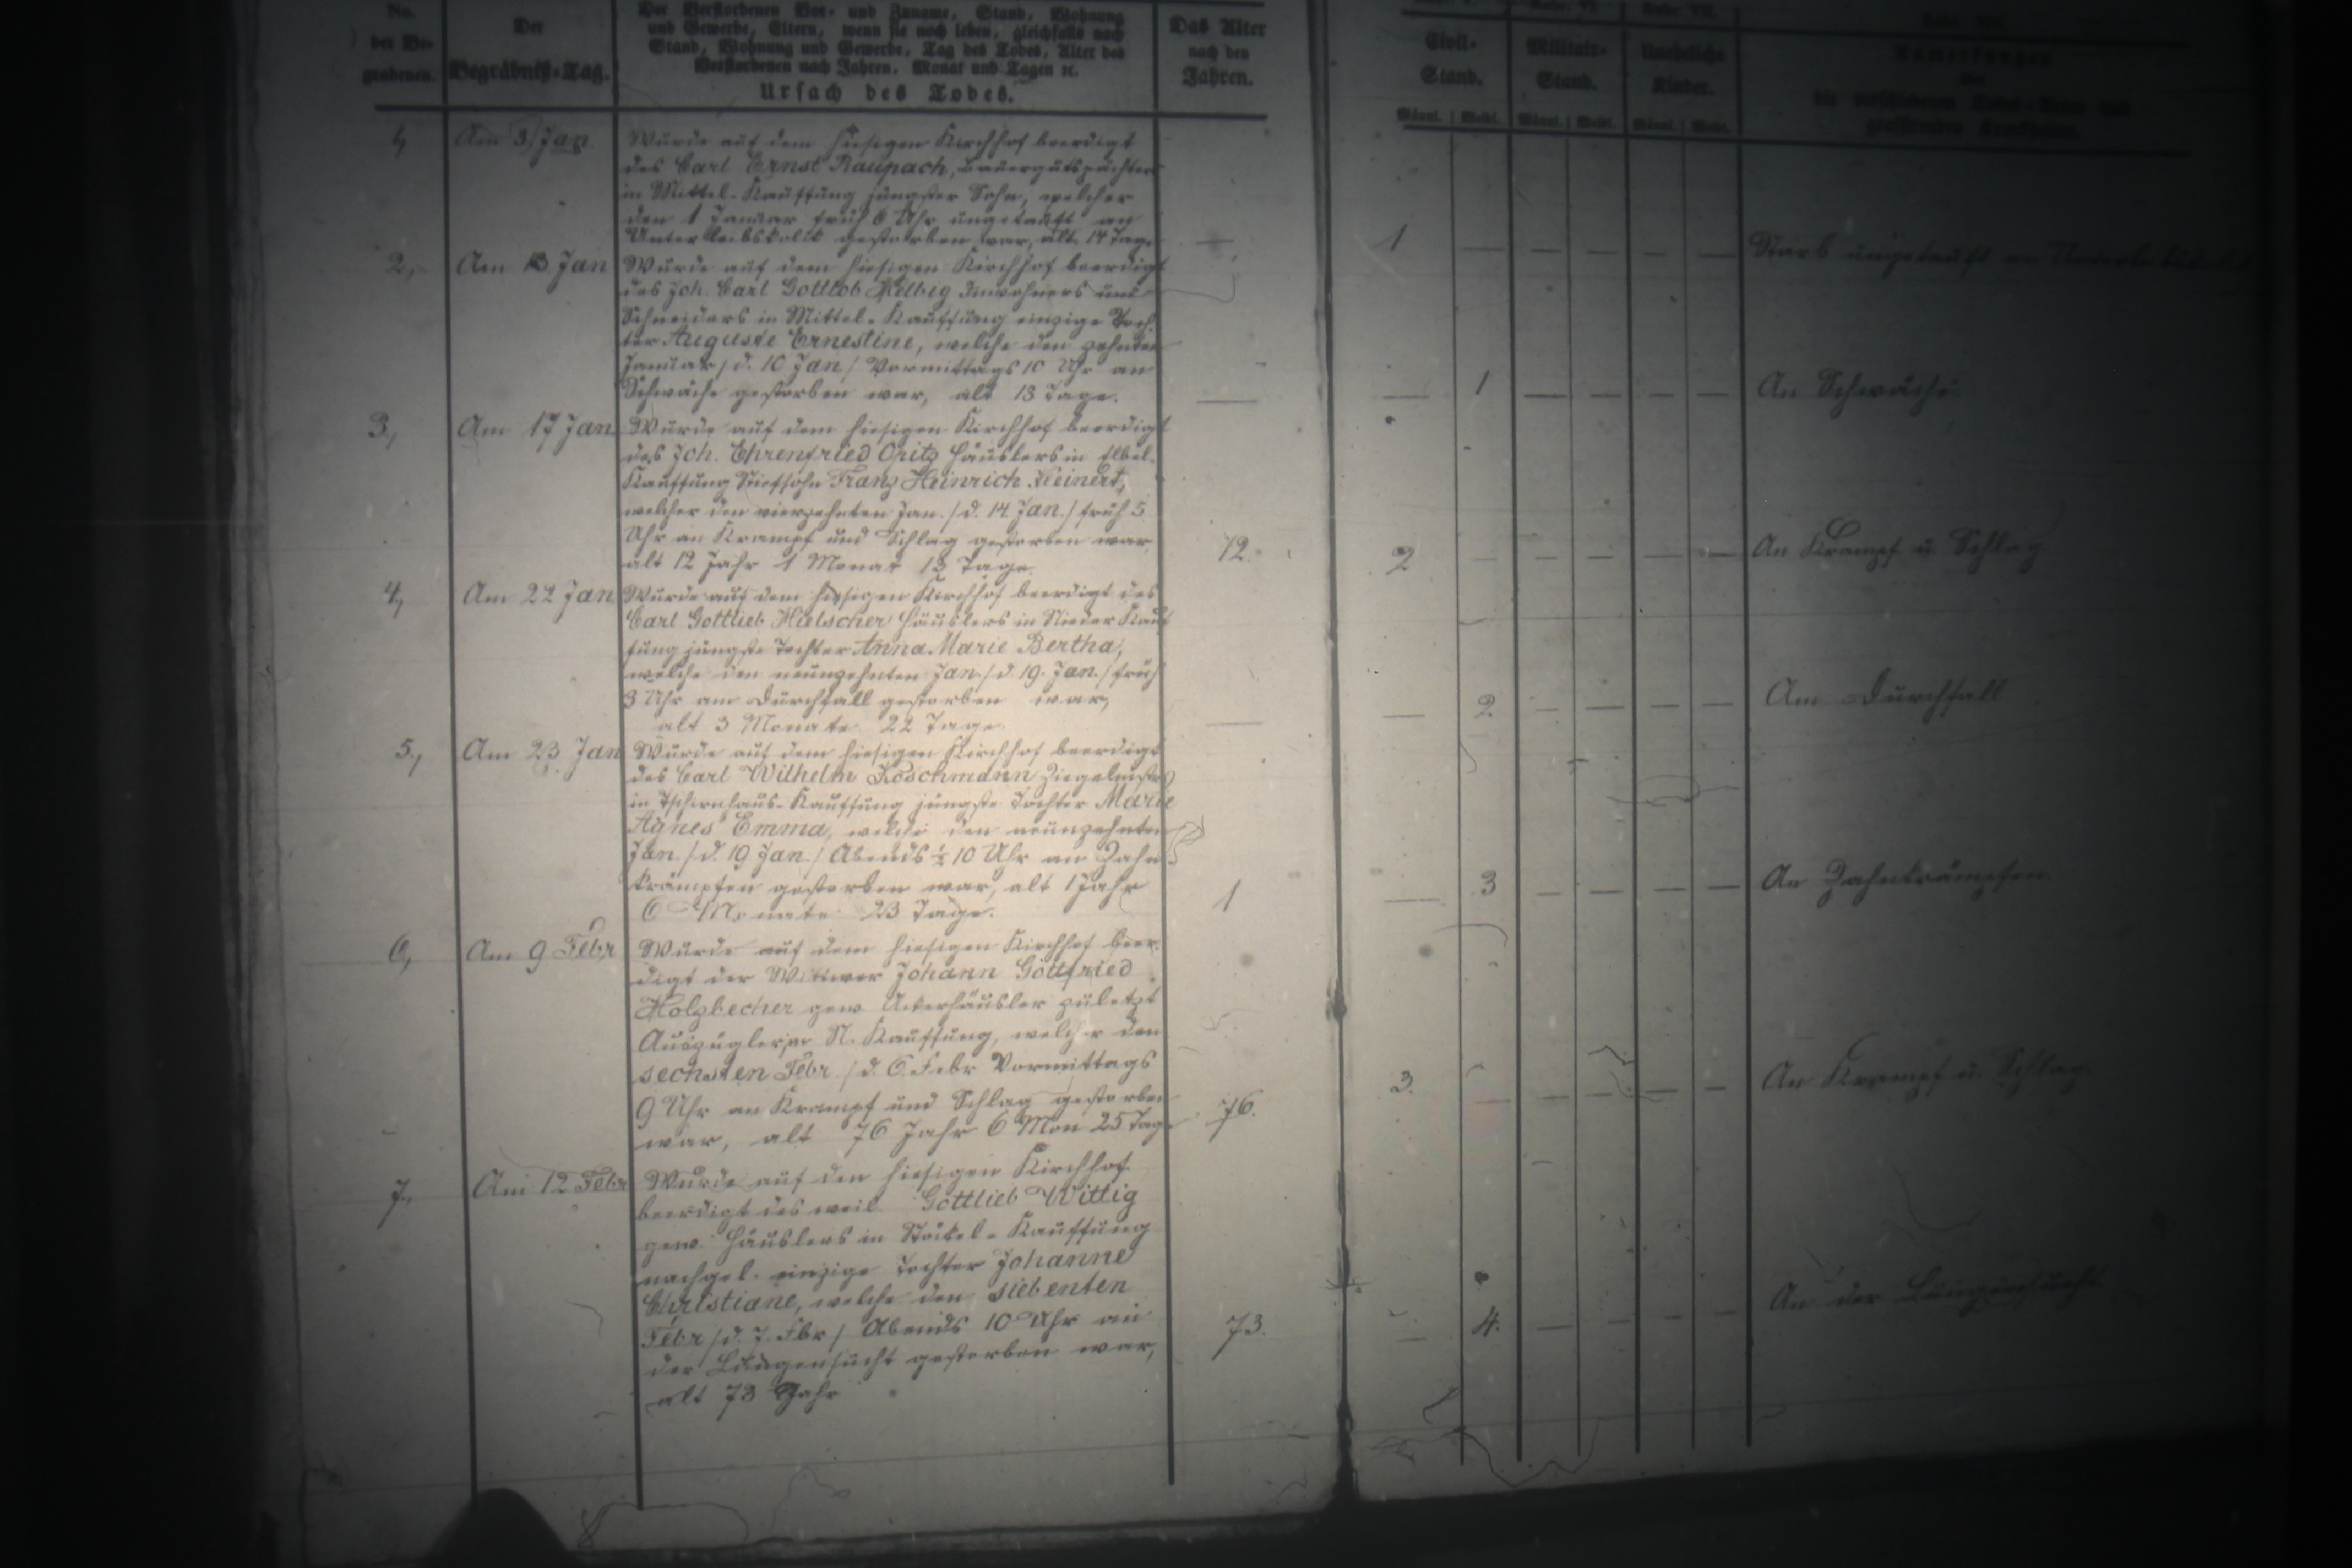 No.
der Be-
grabenen.
Der
Begräbniß-Tag.
Der Verstorbenen Vor- und Zuname, Stand, Wohnung
und Gewerbe, Eltern, wenn sie noch leben, gleichfalls nach
Stand, Wohnung und Gewerbe, Tag des Todes, Alter des
Verstorbenen nach Jahren, Monat und Tagen ꝛc.
Ursach des Todes.
Das Alter
nach den
Jahren.
Civil-
Stand.
Militair-
Stand.
Uneheliche
Kinder.
Männl. Weibl. Männl. Weibl. Männl. Weibl.
1, Am 3. Jan Wurde auf dem hiesigen Kirchhof beerdigt
des Carl Ernst Raupach, Bauergutspächters
in Mittel-Kauffung jüngster Sohn, welcher
den 1 Januar früh 6 Uhr ungetauft an
Unterleibskolik gestorben war, alt 14 Tage — 1 — — — — — Starb ungetauft an
2, Am 13 Jan Wurde auf dem hiesigen Kirchhof beerdigt
des Joh. Carl Gottlob Helbig Inwohners und
Schneiders in Mittel-Kauffung einzige Toch-
ter Auguste Ernestine, welche den zehnten
Januar /d. 10 Jan/ Vormittags 10 Uhr an
Schwäche gestorben war, alt 13 Tage. — — 1 — — — — An Schwäche
3, Am 17 Jan. Wurde auf dem hiesigen Kirchhof beerdigt
des Joh. Ehrenfried Opitz Häuslers in Elbel-
Kauffung Stiefsohn Franz Heinrich Kleinert,
welcher den vierzehnten Jan. /d. 14 Jan./ früh 5
Uhr an Krampf und Schlag gestorben war
alt 12 Jahr 1 Monat 13 Tage. 12. 2 — — — — — An Krampf u. Schlag
4, Am 22 Jan Wurde auf dem hiesigen Kirchhof beerdigt des
Carl Gottlieb Hielscher Häuslers in Nieder Kauf
fung jüngste Tochter Anna Marie Bertha,
welche den neunzehnten Jan. /d 19. Jan./ früh
3 Uhr am Durchfall gestorben war,
alt 3 Monate 22 Tage. — — 2 — — — — Am Durchfall
5., Am 23 Jan Wurde auf dem hiesigen Kirchhof beerdigt
des Carl Wilhelm Koschmann
in Tschirnhaus-Kauffung jüngste Tochter Marie
Agnes Emma, welche den neunzehnten
Jan. /d. 19 Jan./ Abends ½ 10 Uhr an Zahn
krämpfen gestorben war, alt 1 Jahr
6 Monate 23 Tage. 1 — 3 — — — — An Zahnkrämpfen
6, Am 9 Febr Wurde auf dem hiesigen Kirchhof beer-
digt der Wittwer Johann Gottfried
Holzbecher gew Ackerhäusler zuletzt
Auszügler in N. Kauffung, welcher den
sechsten Febr /d. 6. Febr Vormittags
9 Uhr an Krampf und Schlag gestorben
war, alt 76 Jahr 6 Mon 25 Tage 76. 3. — — — — — An Krampf u. Schlag.
7, Am 12 Febr Wurde auf den hiesigen Kirchhof
beerdigt des weil. Gottlieb Wittig
gew. Häuslers in Stöckel-Kauffung
nachgel. einzige Tochter Johanne
Christiane, welche den siebenten
Febr /d. 7. Fbr/ Abends 10 Uhr an
der Lungensucht gestorben war,
alt 73 Jahr 73. — 4. — — — — An der Lungensucht